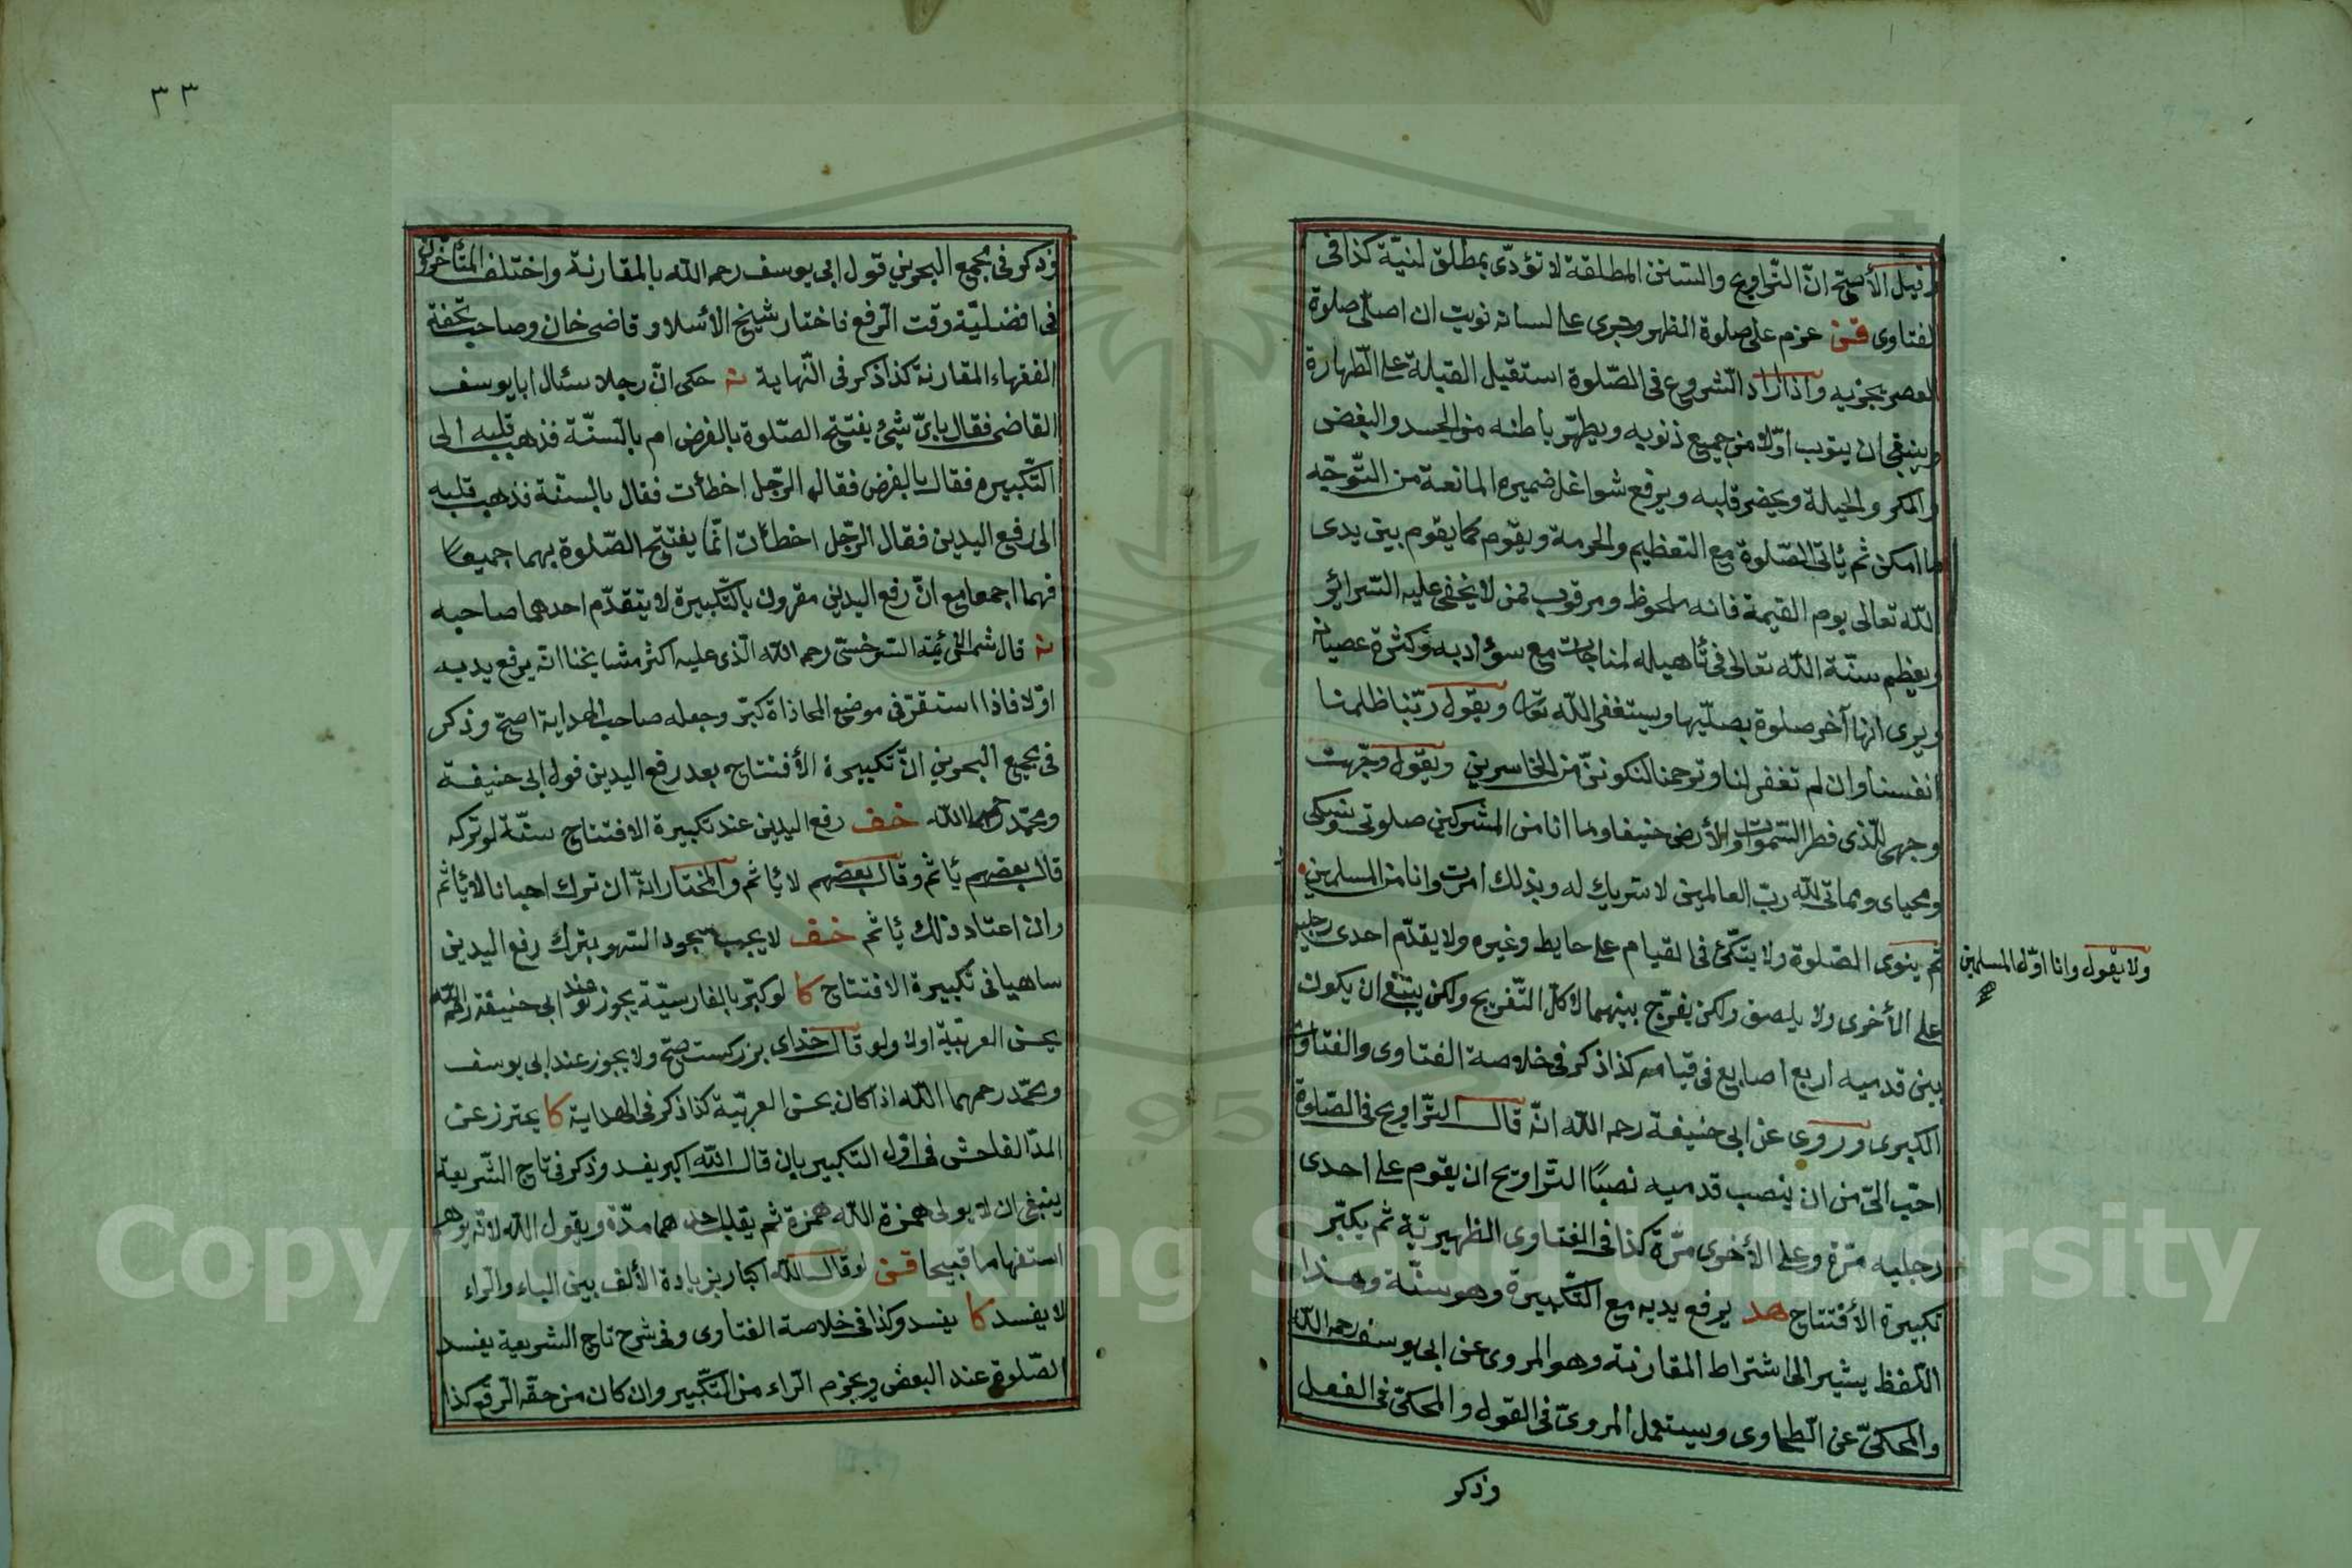 وقيل الأصح انّ التّراويح والسّنن المطلقة لا تؤدّى بمطلق لنيّة كذا فى
لفتاوى قن عزم على صلوة الظهر وجرى على لسانه نويت ان اصلّى صلوة
العصر يجزيه واذا اراد الشروع فى الصّلوة استقبل القبلة على الطّهارة
وينبغى ان يتوب اوّلا من جميع ذنوبه ويطهّر باطنه من الحسد والبغض
والمكر والحيلة ويحضر قلبه ويرفع شواغل ضميره المانعة من التّوجّه
ما امكن ثم يأتى الصّلوة مع التعظيم والحرمة ويقوم كما يقوم بين يدى
اللّه تعالى يوم القيمة فانه ملحوظ ومرقوب ممن لا يخفى عليه السّرائر
ويعظم سنّة اللّه تعالى فى تأهيله لمناجات مع سوء ادبه وكثرة عصيانه
ويرى انها آخر صلوة يصلّيها ويستغفر اللّه تعا ويقول ربّنا ظلمنا
انفسنا وان لم تغفر لنا وترحمنا لنكوننّ من الخاسرين ويقول وجّهت
وجهى للّذى فطر السّموات والأرض حنيفا وما انا من المشركين صلوتى ونسكى
ومحياى ومماتى للّه ربّ العالمين لا شريك له وبذلك امرت وانا من المسلمين
ولا يقول وانا اوّل المسلمين
ثم ينوى الصّلوة ولا يتكّئ فى القيام على حايط وغيره ولا يقدّم احدى رجليه
على الأخرى ولا يلصق ولكن يفرّج بينهما لا كل التّفريج ولكن ينبغى ان يكون
بين قدميه اربع اصابع فى قيامه كذا ذكر فى خلاصة الفتاوى والفتاوى
الكبرى وروى عن ابى حنيفة رحمه اللّه انّه قال التّراويح فى الصّلوة
احبّ الىّ من ان ينصب قدميه نصبًا التّراويح ان يقوم على احدى
رجليه مّرة وعلى الأخرى مّرة كذا فى الفتاوى الظهيريّة ثم يكبّر
تكبيرة الأفتتاح هد يرفع يديه مع التكبيرة وهو سنّة وهذا
اللفظ يشير الى اشتراط المقارنة وهو المروى عن ابى يوسف رحمه اللّه
والمحكىّ عن الطّحاوى وسيستعمل المروىّ فى القول والمحكىّ فى الفعل
وذكر
٣٣
وذكر فى مجمع البحرين قول ابى يوسف رحمه اللّه بالمقارنة واختلف المتأخّرون
فى افضليّة وقت الرّفع فاختار شيخ الأسلام وقاضى خان وصاحب تحفة
الفقهاء المقارنة كذا ذكر فى النّهاية نه حكى انّ رجلا سئال ابا يوسف
القاضى فقال باىّ شئ يفتتح الصّلوة بالفرض ام بالسّنّة فذهب قلبه الى
التّكبيره فقال بالفرض فقال الرّجل اخطأت فقال بالسنّة فذهب قلبه
الى رفع اليدين فقال الرّجل اخطأت انّما يفتتح الصّلوة بهما جميعًا
فهما اجمعا مع انّ رفع اليدين مقرون بالتّكبيرة لا يتقدّم احدهما صاحبه
نه قال شمس الأئمة السّرخسىّ رحمه اللّه الّذى عليه اكثر مشايخنا انّه يرفع يديه
اوّلا فاذا استقرّ فى موضع المحاذاة كبّر وجعله صاحب الهداية اصحّ وذكر
فى مجمع البحرين انّ تكبيرة الأفتتاح بعد رفع اليدين قول ابى حنيفة
ومحمّد رحمهما اللّه خف رفع اليدين عند تكبيرة الافتتاح سنّة لو تركه
قال بعضهم يأثم وقال بعضهم لا يأثم والمختار انّه ان ترك احيانا لا يأثم
وان اعتاد ذلك يأثم خف لا يجب سجود السّهو بترك رفع اليدين
ساهيا فى تكبيرة الافتتاح كا لو كبّر بالفارسيّة يجوز عند ابى حنيفة رحمه اللّه
يحسن العربيّة اولا ولو قال خداى بزركست صحّ ولا يجوز عند ابى يوسف
ومحمّد رحمهما اللّه اذا كان يحسن العربيّة كذا ذكر فى الهداية كا يحترز عن
المدّ الفاحش فى اوّل التكبير بان قال آللّه اكبر يفسد وذكر فى تاج الشّريعة
ينبغى ان لا يولى همزة اللّه همزة ثم يقلب احدهما مدّة ويقول اللّه لانّه يوهم
استفهاما قبيحا قن لو قال اللّه اكبار بزيادة الألف بين الباء والرّاء
لا يفسد كا يفسد وكذا فى خلاصة الفتاوى وفى شرح تاج الشريعة يفسد
الصّلوة عند البعض ويجزم الرّاء من التّكبير وان كان من حقّه الرّفع كذا